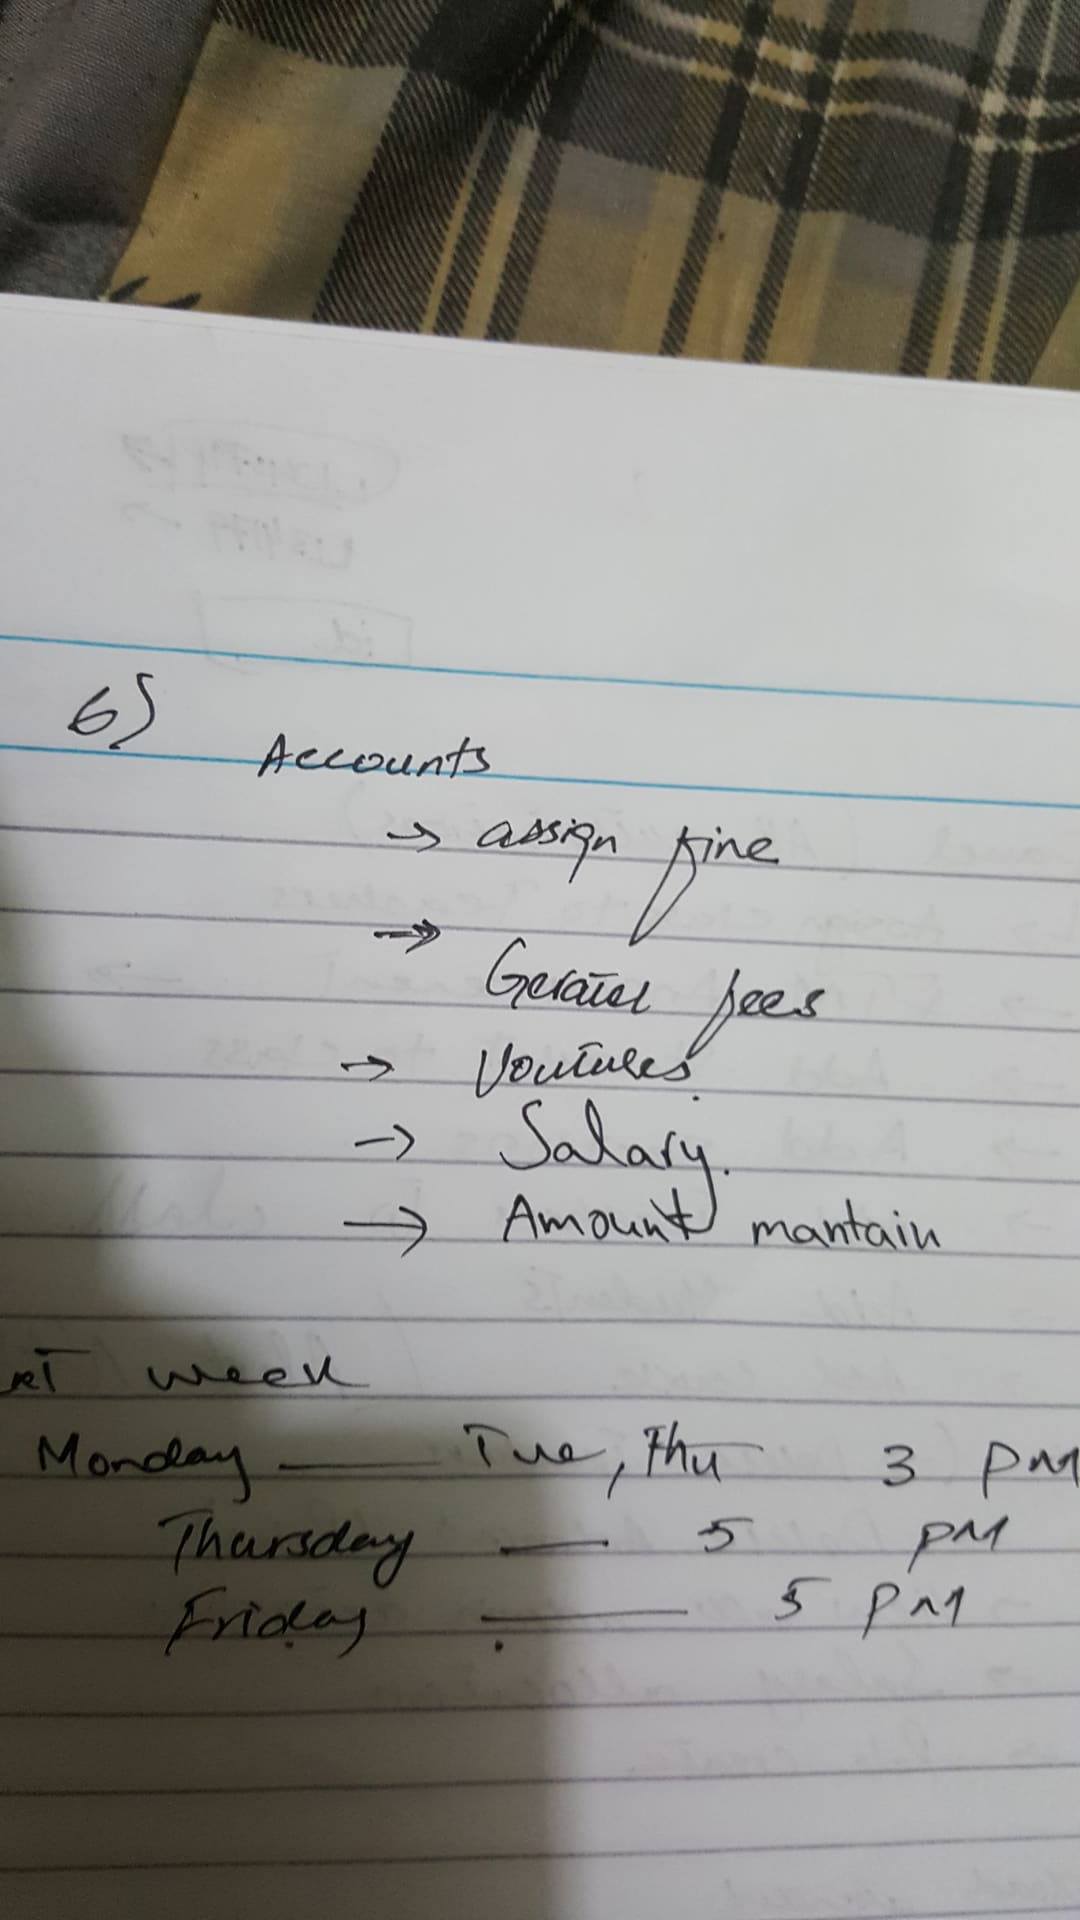 6)
Accounts
→ assign fine
→ fees
→
→ Salary.
→ Amount mantain
week
Monday — Tue, Thu 3 PM
Thursday — 5 PM
Friday — 5 PM